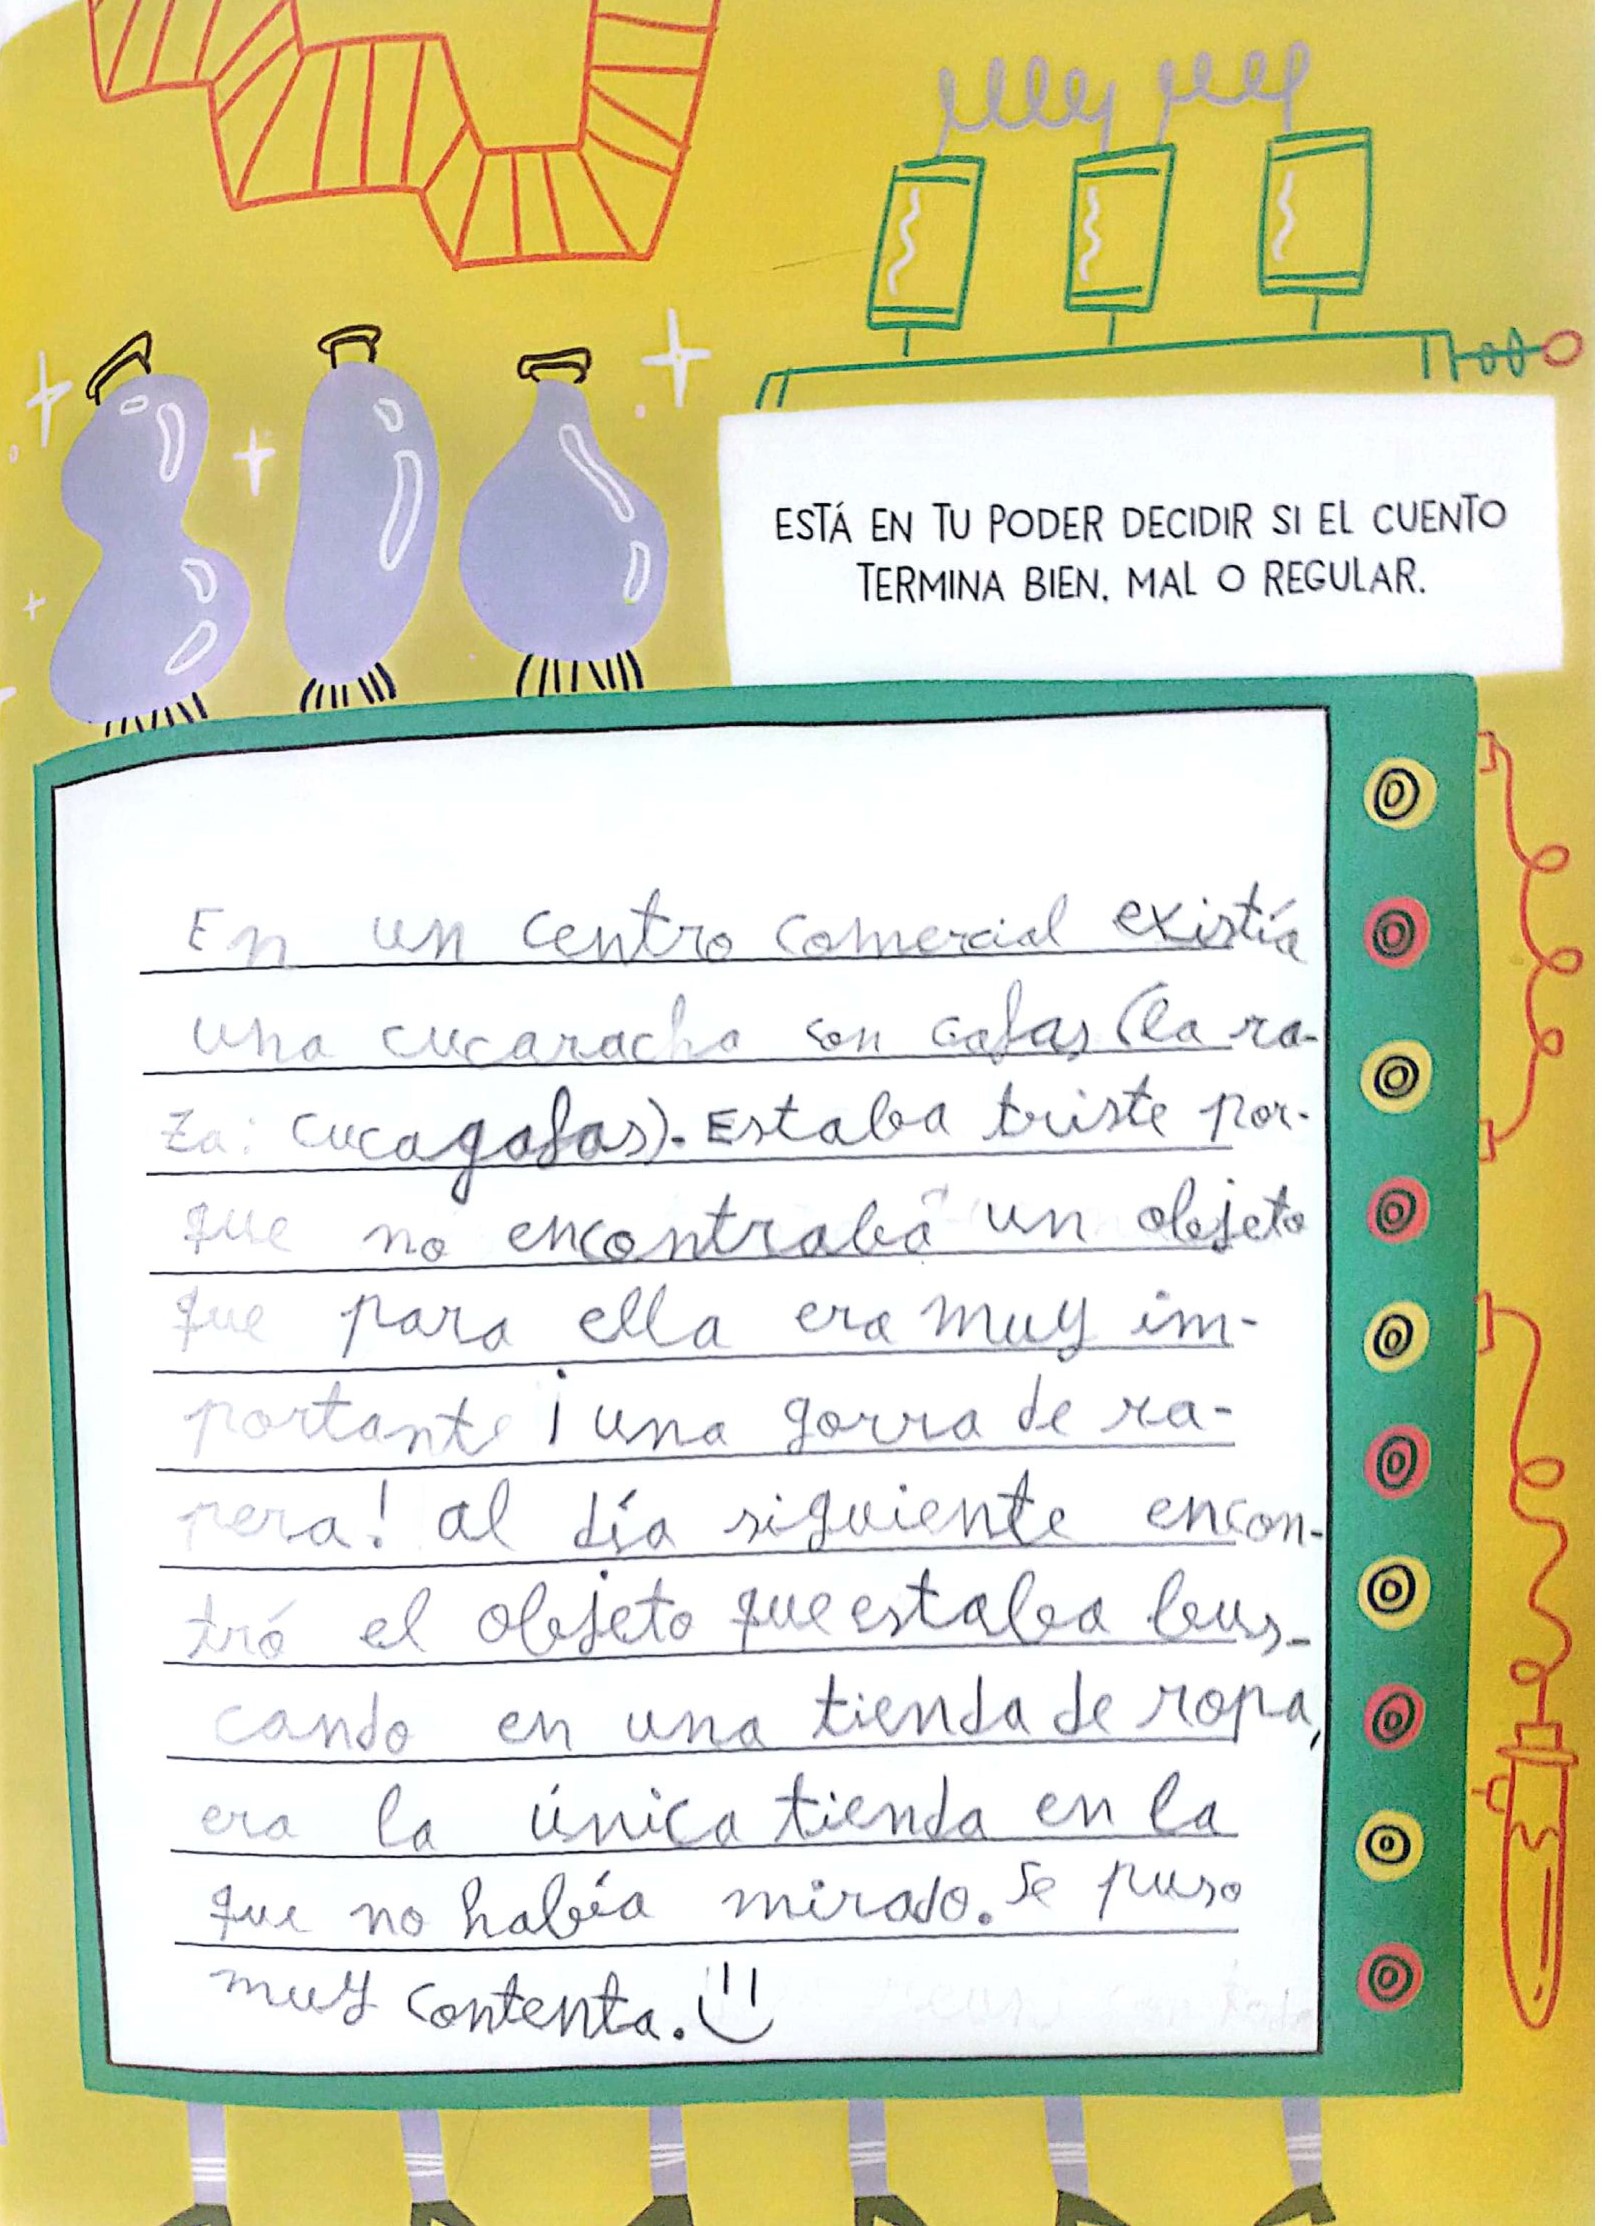 ESTÁ EN TU PODER DECIDIR SI EL CUENTO
TERMINA BIEN, MAL O REGULAR.
En un centro comercial existía
una cucaracha con gafas (la ra-
za: cucagafas). Estaba triste por-
que no encontraba un objeto
que para ella era muy im-
portante ¡una gorra de ra-
pera! al día siguiente encon-
tró el objeto que estaba bus-
cando en una tienda de ropa,
era la única tienda en la
que no había mirado. Se puso
muy contenta.